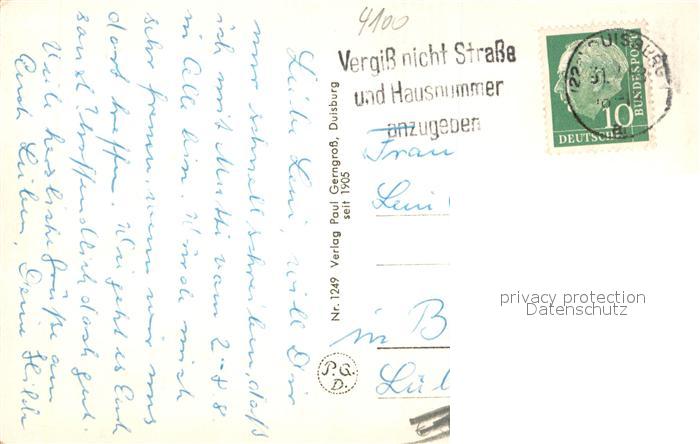 4100
Vergiß nicht Straße
und Hausnummer
anzugeben
DUISBURG
DEUTSCHE
BUNDESPOST
10
Liebe Leni, will Dir
nur schnell schreiben, daß
ich mit Mutti vom 2.-48.
in Celle bin. Würde mich
sehr freuen, wenn wir uns
dort treffen. Wie geht es Euch
sonst? Hoffentlich doch gut.
Viele herzliche Grüße an
Euch Lieben, Deine Hilde
Nr. 1249 Verlag Paul Gerngroß, Duisburg
seit 1905
P.G.
D.
Frau
Leni
in B
Lü
privacy protection
Datenschutz